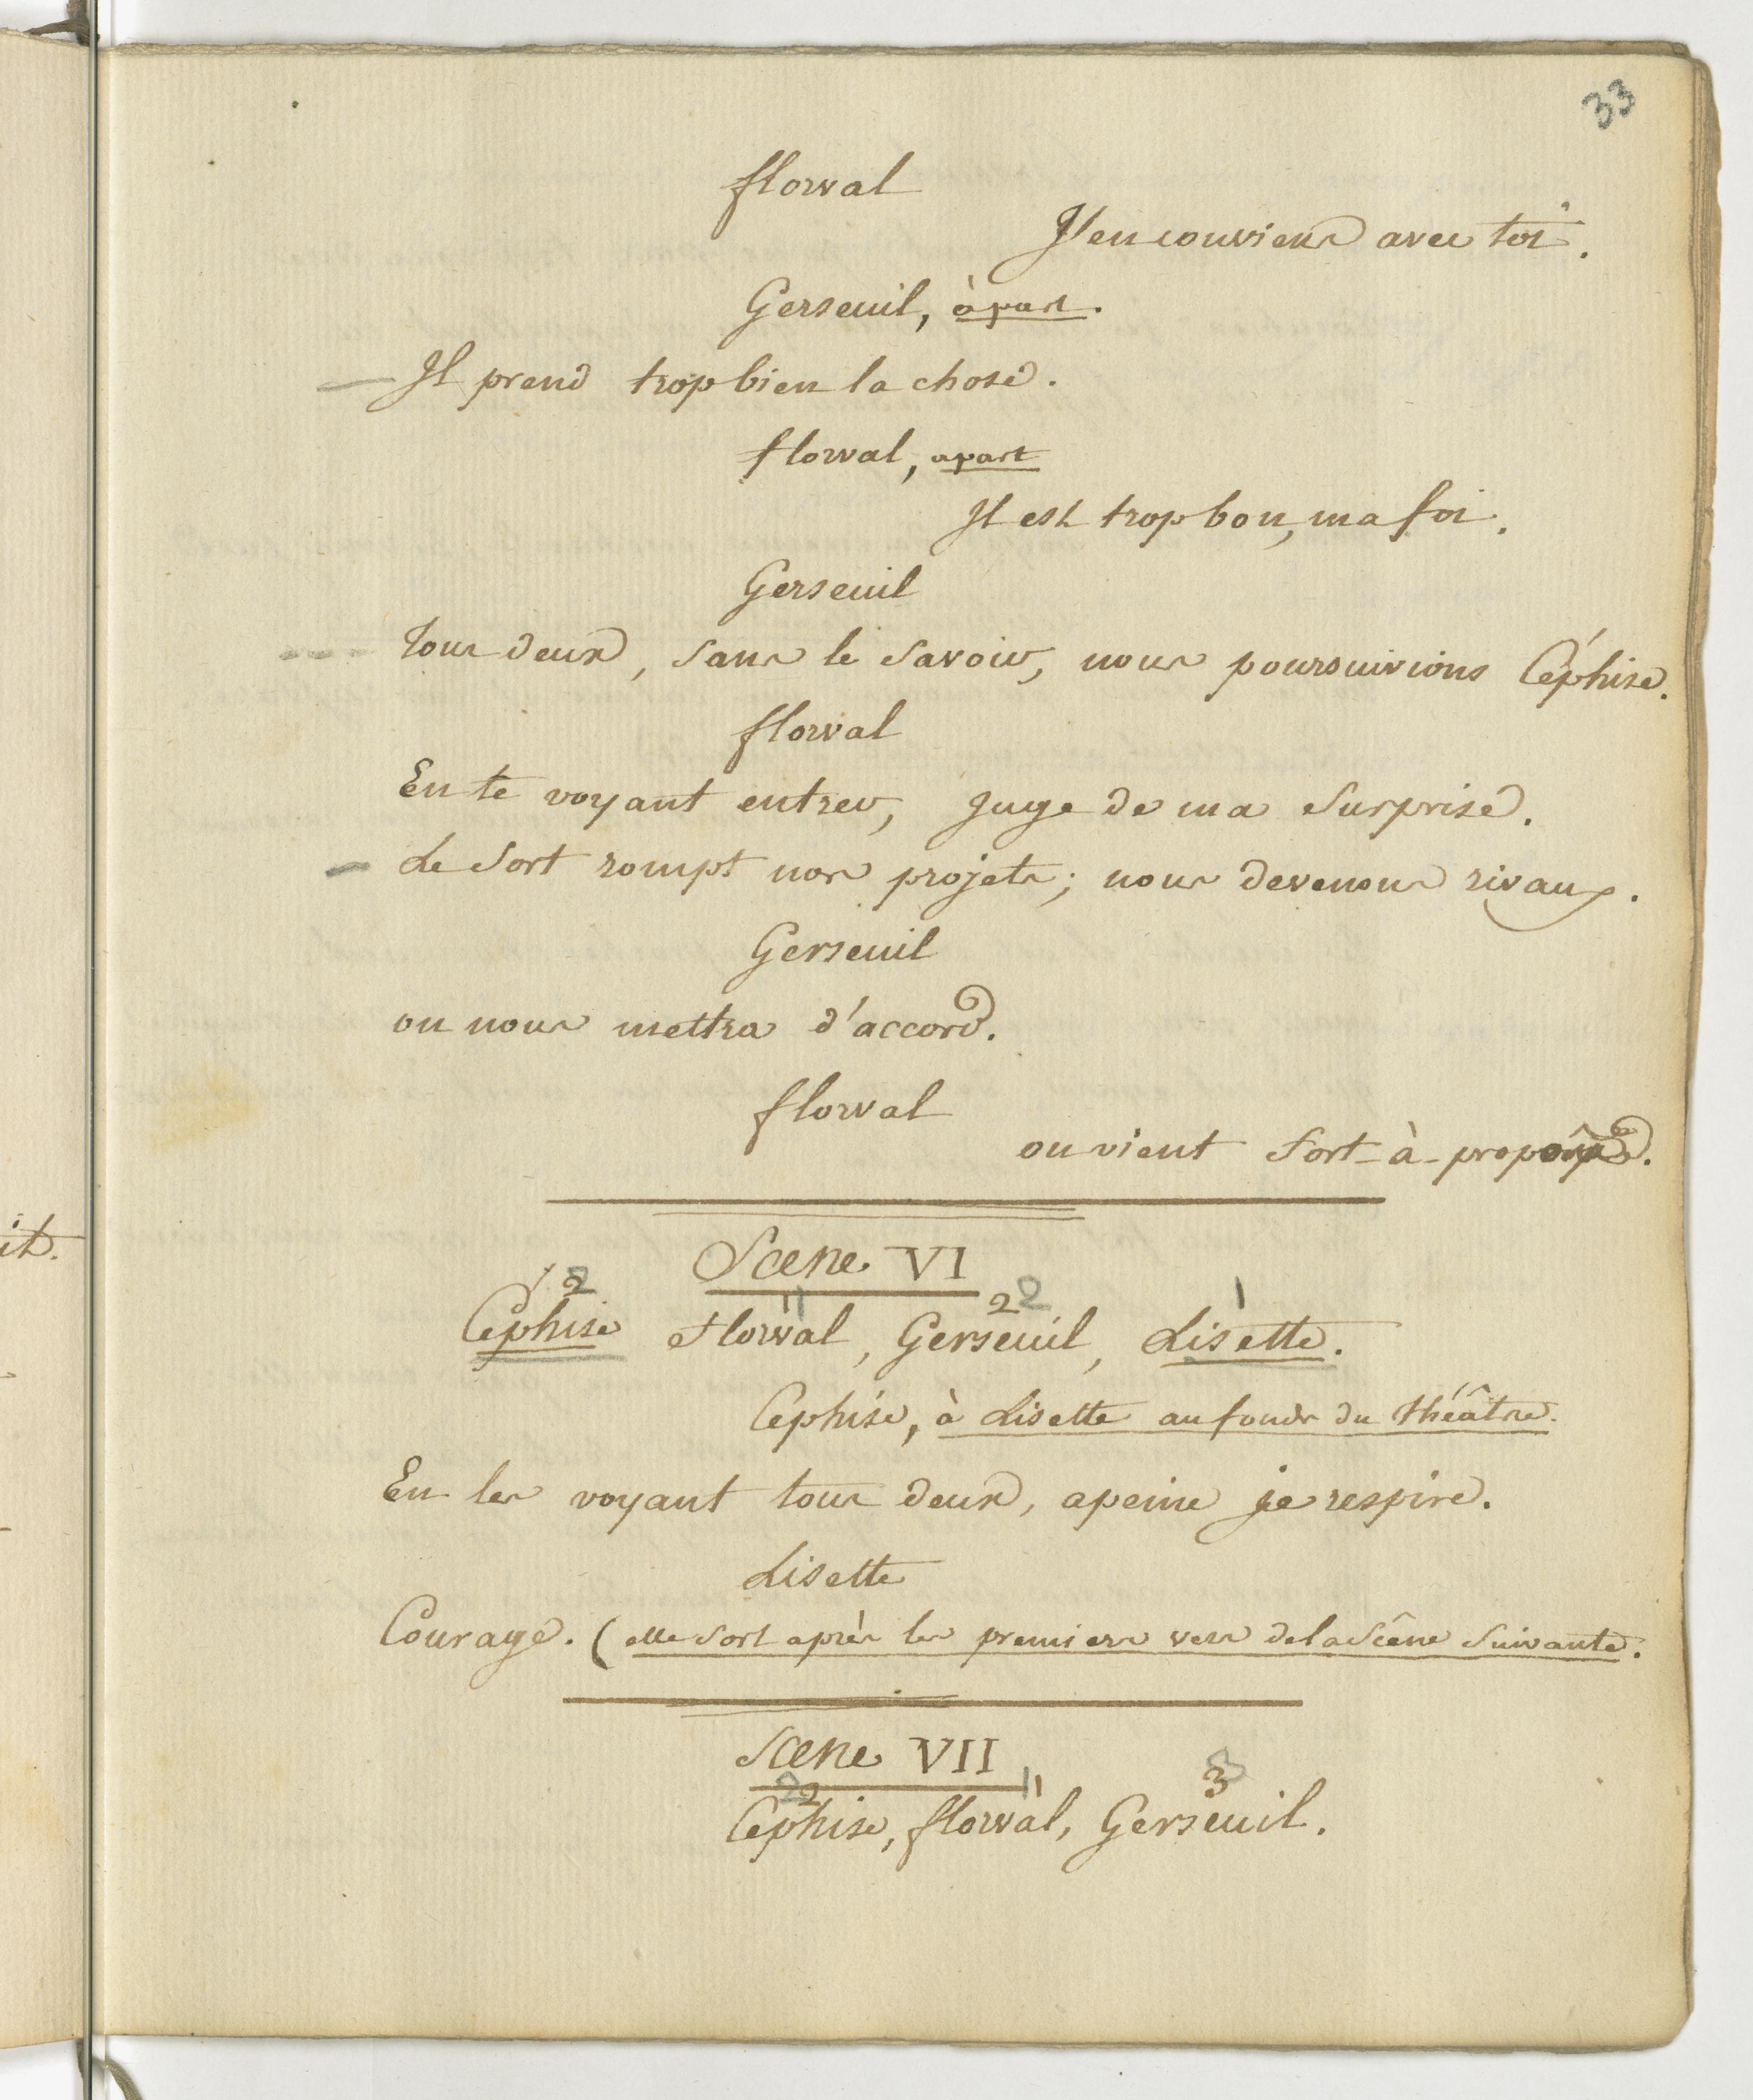 33
florval
J'en conviens avec toi.
Gerseuil, à part.
Il prend trop bien la chose.
florval, apart
Il est trop bon, ma foi.
Gerseuil
tous deux, sans le savoir, nous poursuivions Céphise.
florval
En te voyant entrer, juge de ma surprise.
Le sort rompt nos projets; nous devenons rivaux.
Gerseuil
on nous mettra d'accord.
florval
on vient fort-à-propos.
Scene VI
2 11 22 1
Céphise Florval, Gerseuil, Lisette.
Céphise, à Lisette au fonds du théâtre.
En les voyant tous deux, apeine je respire.
Lisette
Courage. (elle sort après les premiers vers de la scêne suivante.
Scene VII
22 11 3
Céphise, florval, Gerseuil.